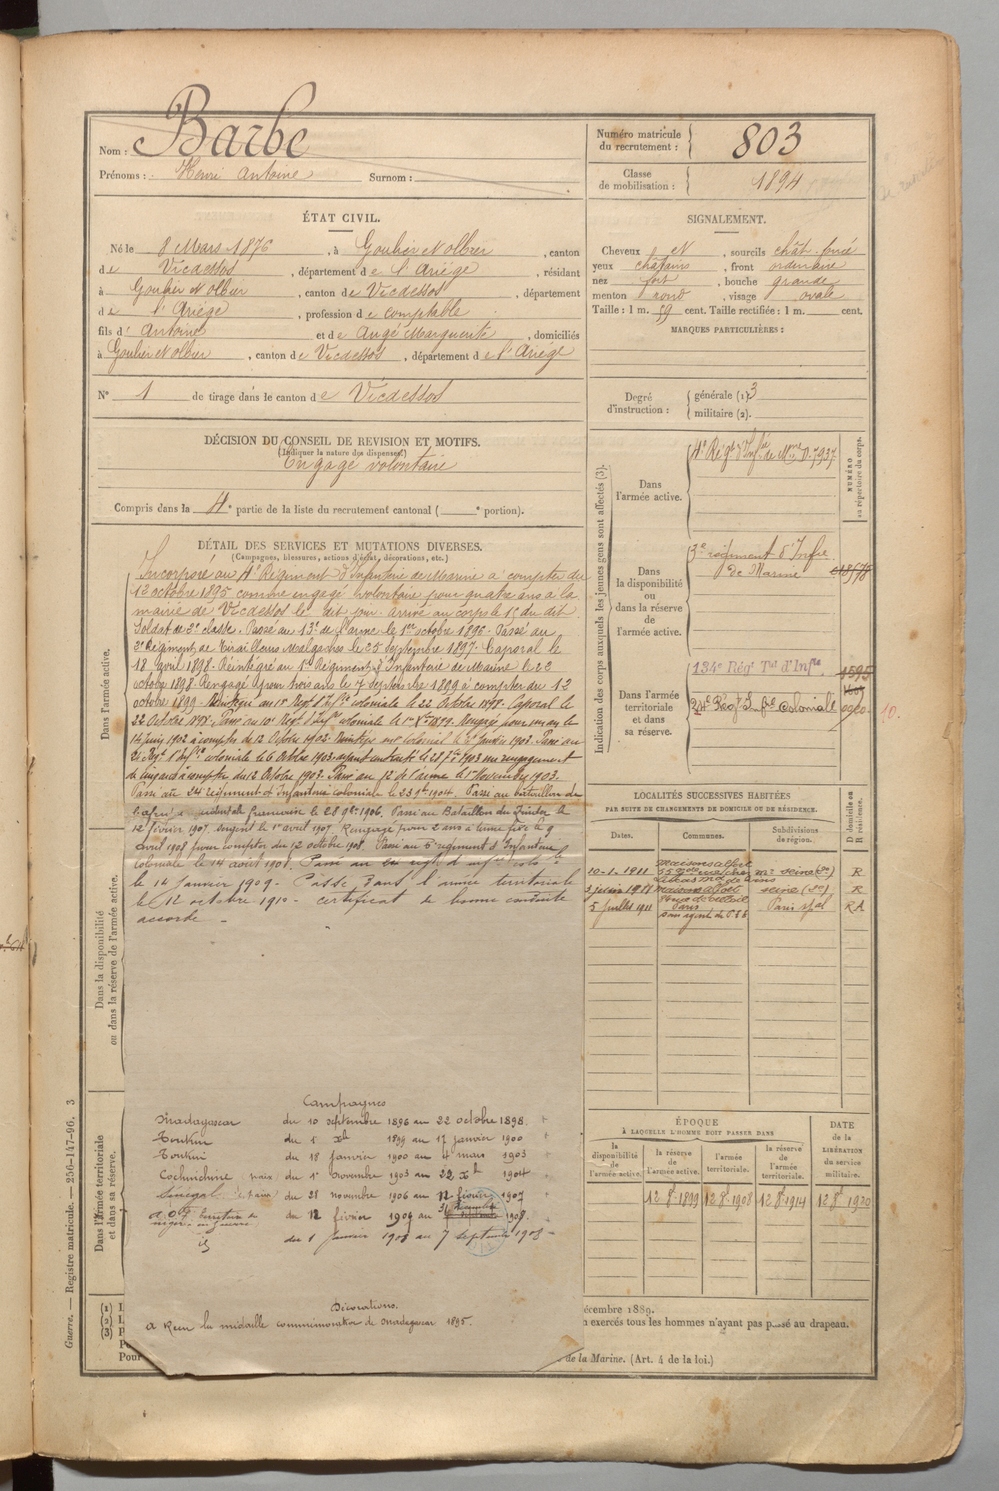 Nom : Barbe
Prénoms : Henri Antoine Surnom :
Numéro matricule du recrutement : 803
Classe de mobilisation : 1894
ÉTAT CIVIL.
Né le 8 Mars 1876, à Goulier et Olbier, canton
de Vicdessos, département de l'Ariège, résidant
à Goulier et Olbier, canton de Vicdessos, département
de l'Ariège, profession de comptable
fils d'Antoine et de Augé Marguerite, domiciliés
à Goulier et Olbier, canton de Vicdessos, département de l'Ariège
N° 1 de tirage dans le canton de Vicdessos
SIGNALEMENT.
Cheveux et, sourcils chât. foncé
yeux châtains, front ordinaire
nez fort, bouche grande
menton rond, visage ovale
Taille : 1 m. 59 cent. Taille rectifiée : 1 m. cent.
MARQUES PARTICULIÈRES :
Degré d'instruction : générale (1) 3
militaire (2).
DÉCISION DU CONSEIL DE REVISION ET MOTIFS.
(Indiquer la nature des dispenses.)
Engagé volontaire
Compris dans la 4e partie de la liste du recrutement cantonal ( e portion).
DÉTAIL DES SERVICES ET MUTATIONS DIVERSES.
(Campagnes, blessures, actions d'éclat, décorations, etc.)
Incorporé au 4e Régiment d'Infanterie de Marine à compter du
12 octobre 1895 comme engagé volontaire pour quatre ans à la
mairie de Vicdessos le dit jour. arrivé au corps le 15 du dit.
Soldat de 2e classe. Passé au 13e de l'arme le 1er octobre 1896. Passé au
2e Régiment de Tirailleurs Malgaches le 25 Septembre 1897. Caporal le
18 avril 1898. Réintégré au 1er Régiment d'Infanterie de Marine le 22
octobre 1898. Rengagé pour trois ans le 7 Septembre 1899 à compter du 12
octobre 1899. au 1er Régt d'Infie coloniale le 22 Octobre 1898. Caporal le
22 Octobre 1898. Passé au 10e Régt d'Infie coloniale le 1er Xbre 1899. Rengagé pour un an le
14 Juin 1902 à compter du 12 Octobre 1902. Janvier 1903. Passé au
Régt d'Infie coloniale le 6 Octobre 1903. ayant contracté le 1903 un rengagement
de cinq ans à compter du 12 Octobre 1903. Passé au 12 de l'arme le 1er Novembre 1903.
Passé au 24 régiment d'Infanterie coloniale le 23 9bre 1904. Passé au bataillon de
l'afrique occidentale française le 28 9bre 1906. Passé au Bataillon du Zinder le
12 février 1907. sergent le 1er avril 1907. Rengagé pour 2 ans à terme fixe le 9
Avril 1908 pour compter du 12 octobre 1908. Passé au 5e régiment d'Infanterie
coloniale le 14 août 1908. Passé au régt d'infie colole
le 14 Janvier 1909. Passé dans l'armée territoriale
le 12 octobre 1910. certificat de bonne conduite
accordé
Campagnes
Madagascar du 10 septembre 1896 au 22 octobre 1898.
Tonkin du 1 Xb 1899 au 17 janvier 1900
Tonkin du 18 janvier 1900 au 4 mars 1903
Cochinchine paix du 1er novembre 1903 au 22 Xb 1904
Sénégal paix du 28 novembre 1906 au 12 février 1907
A O F territoire du niger en guerre du 12 février 1907 au 31 1908.
du 1 Janvier 1908 au 7 septembre 1908
Décorations.
A reçu la médaille commémorative de Madagascar 1895.
Dans l'armée active.
Dans la disponibilité ou dans la réserve de l'armée active.
Dans l'armée territoriale et dans sa réserve.
Indication des corps auxquels les jeunes gens sont affectés (3).
NUMÉRO au répertoire du corps.
Dans l'armée active. 4e Régt d'Infie de Mne n° 7937
Dans la disponibilité ou dans la réserve de l'armée active. 3e régiment d'Infie de Marine 18578
Dans l'armée territoriale et dans sa réserve. 134e Régt Tal d'Infie 1595
24e Régt Infie Coloniale
LOCALITÉS SUCCESSIVES HABITÉES
PAR SUITE DE CHANGEMENTS DE DOMICILE OU DE RÉSIDENCE.
Dates. Communes. Subdivisions de région. D domicile ou R résidence.
10-1-1911 Maisons alfort seine R
3 juin 1911 Maisons alfort seine R
5 juillet 1911 Paris Paris RA
ÉPOQUE
À LAQUELLE L'HOMME DOIT PASSER DANS
la disponibilité de l'armée active. la réserve de l'armée active. l'armée territoriale. la réserve de l'armée territoriale.
DATE de la LIBÉRATION du service militaire.
12 8e 1899 12 8e 1908 12 8e 1914 12 8e 1920
écembre 1889.
exercés tous les hommes n'ayant pas passé au drapeau.
de la Marine. (Art. 4 de la loi.)
Guerre. — Registre matricule. — 256-147-96. 3